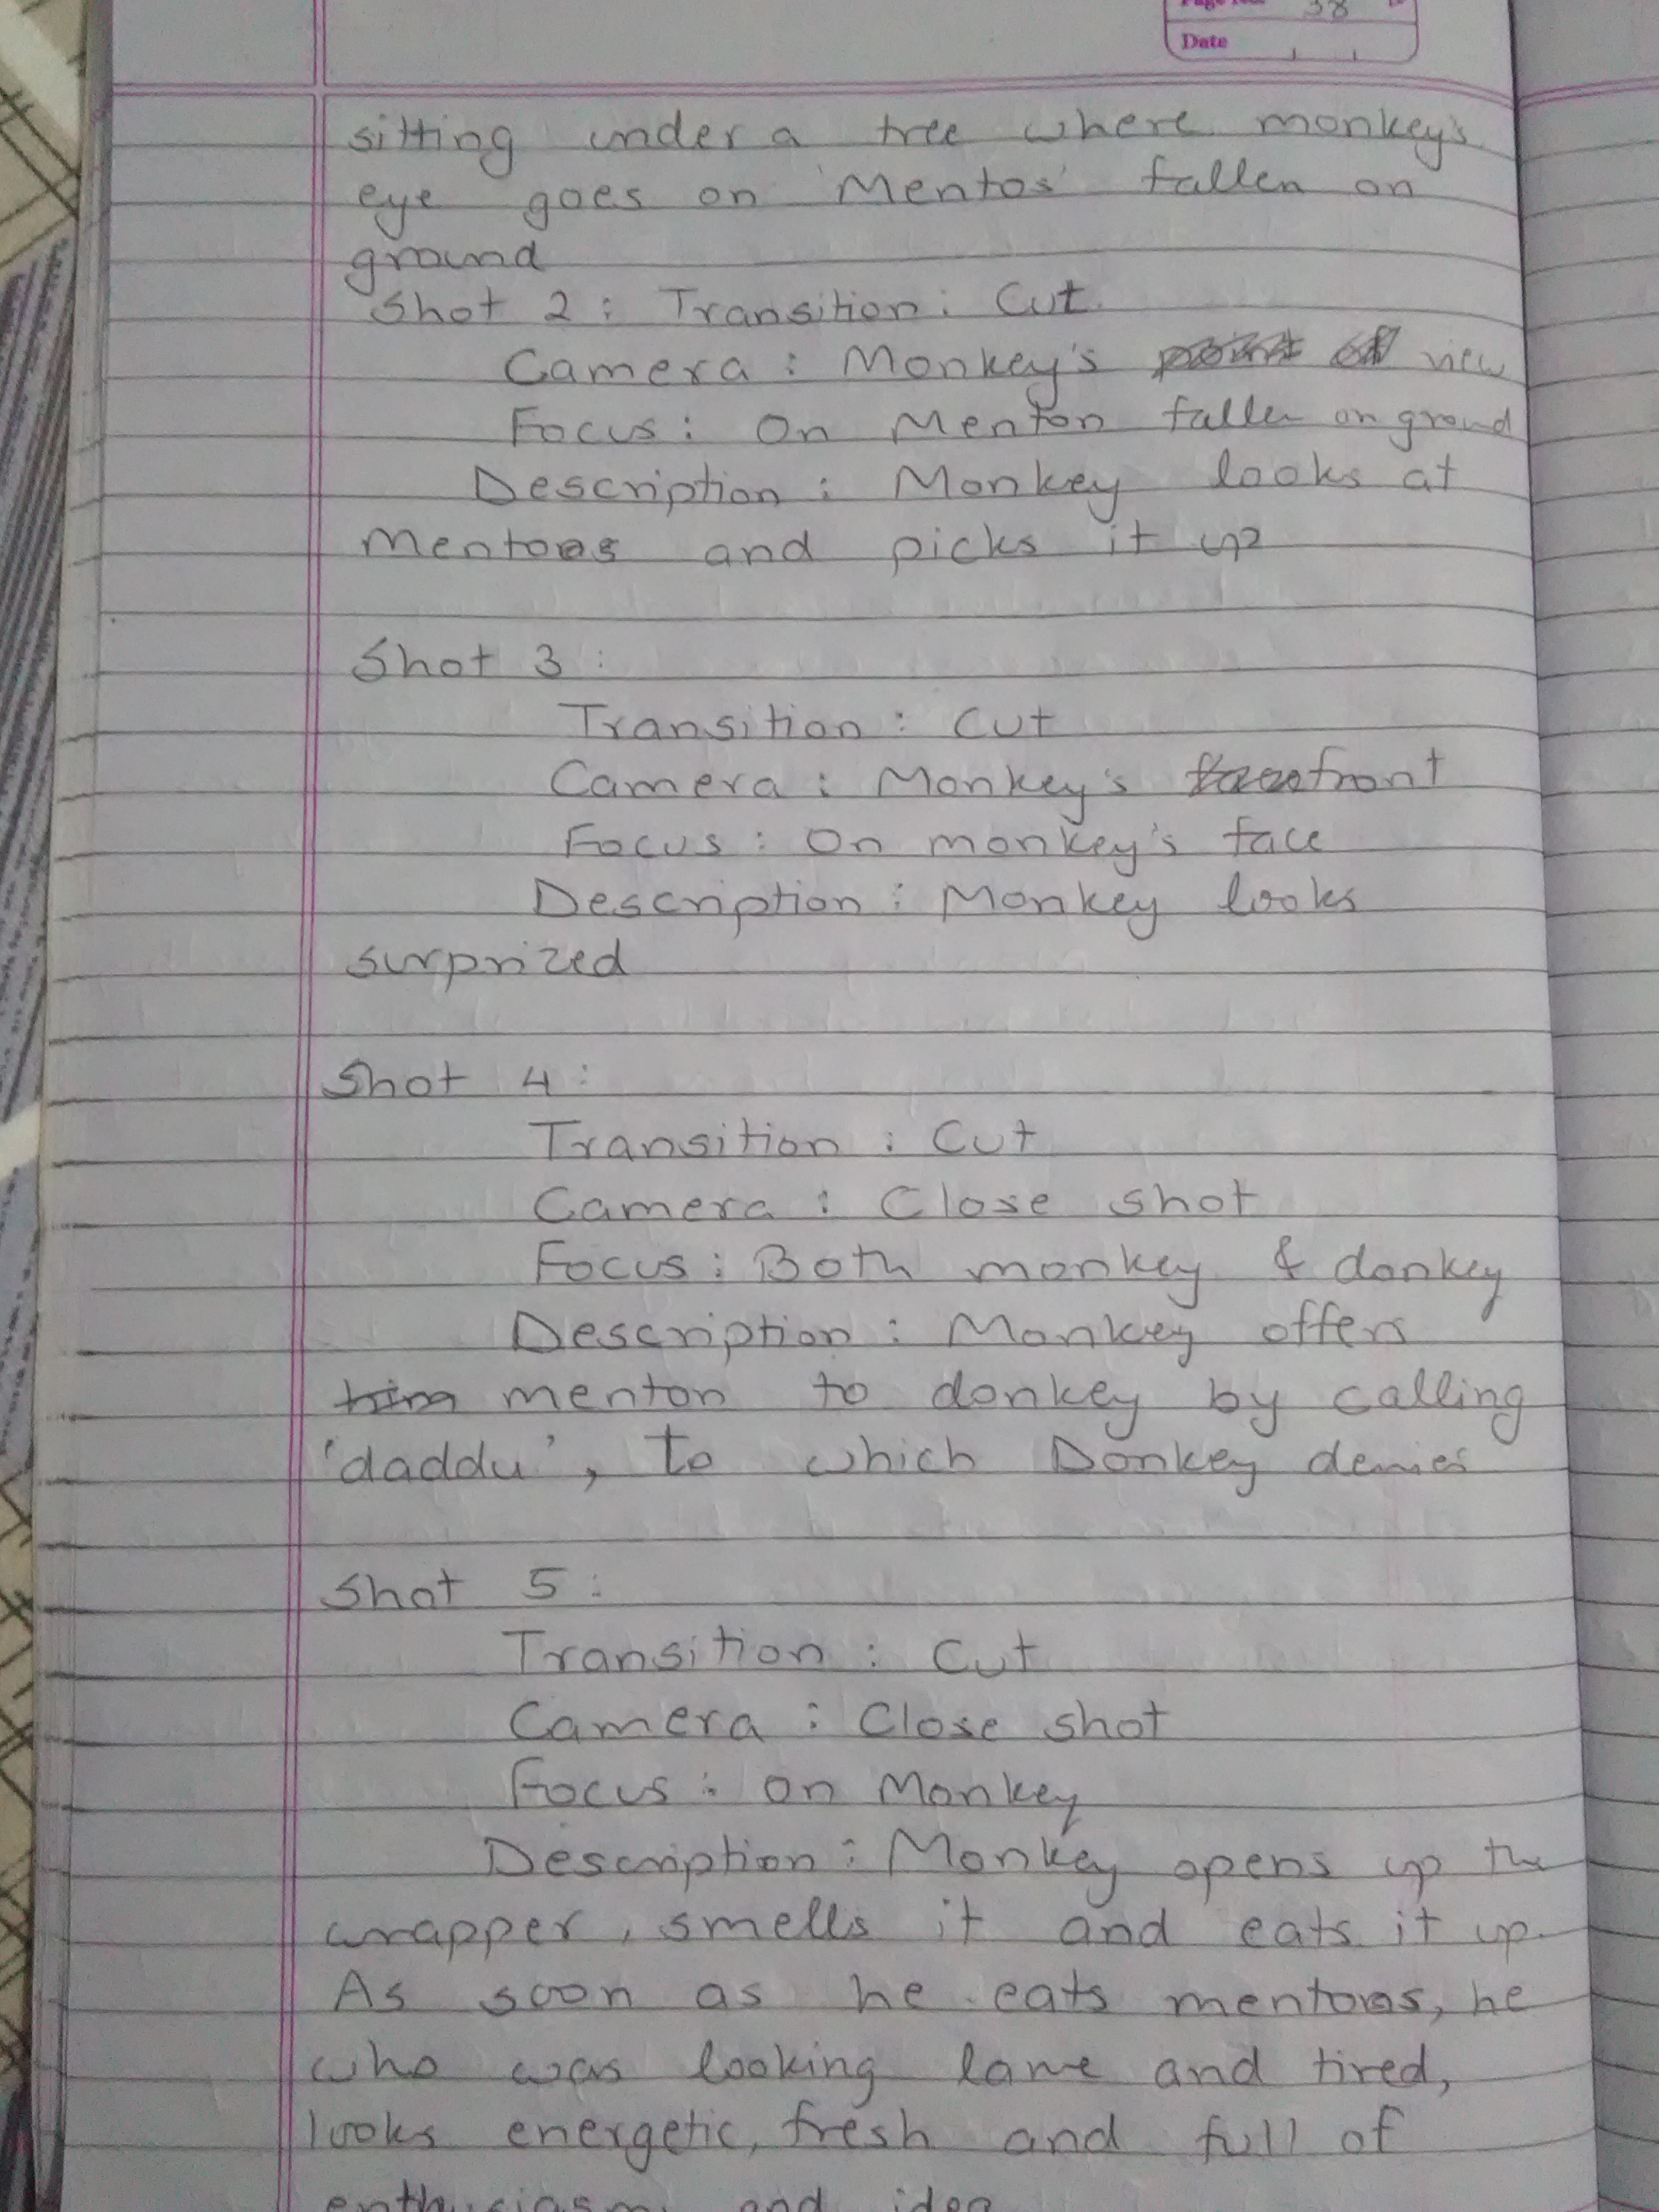 Page No. 38
Date
sitting under a tree where monkey's
eye goes on 'Mentos' fallen on
ground
Shot 2 : Transition : Cut
Camera : Monkey's view
Focus : On Menton fallen on ground
Description : Monkey looks at
mentos and picks it up
Shot 3 :
Transition : Cut
Camera : Monkey's front
Focus : On monkey's face
Description : Monkey looks
surprized
Shot 4 :
Transition : Cut
Camera : Close shot
Focus : Both monkey & donkey
Description : Monkey offers
him menton to donkey by calling
'daddu', to which Donkey denies
Shot 5 :
Transition : Cut
Camera : Close shot
Focus : On Monkey
Description : Monkey opens up the
wrapper, smells it and eats it up.
As soon as he eats mentos, he
who was looking lame and tired,
looks energetic, fresh and full of
enthusiasm and idea